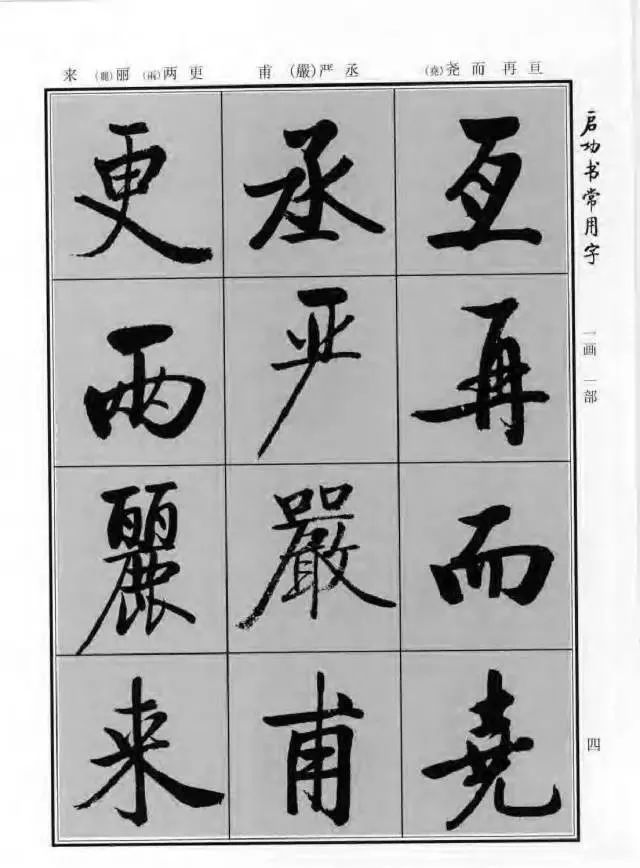 启功书常用字
一画 一部
四
亘再而尧(堯)
丞严(嚴)甫
更两(兩)丽(麗)来
亘再而堯
丞严嚴甫
更兩麗来